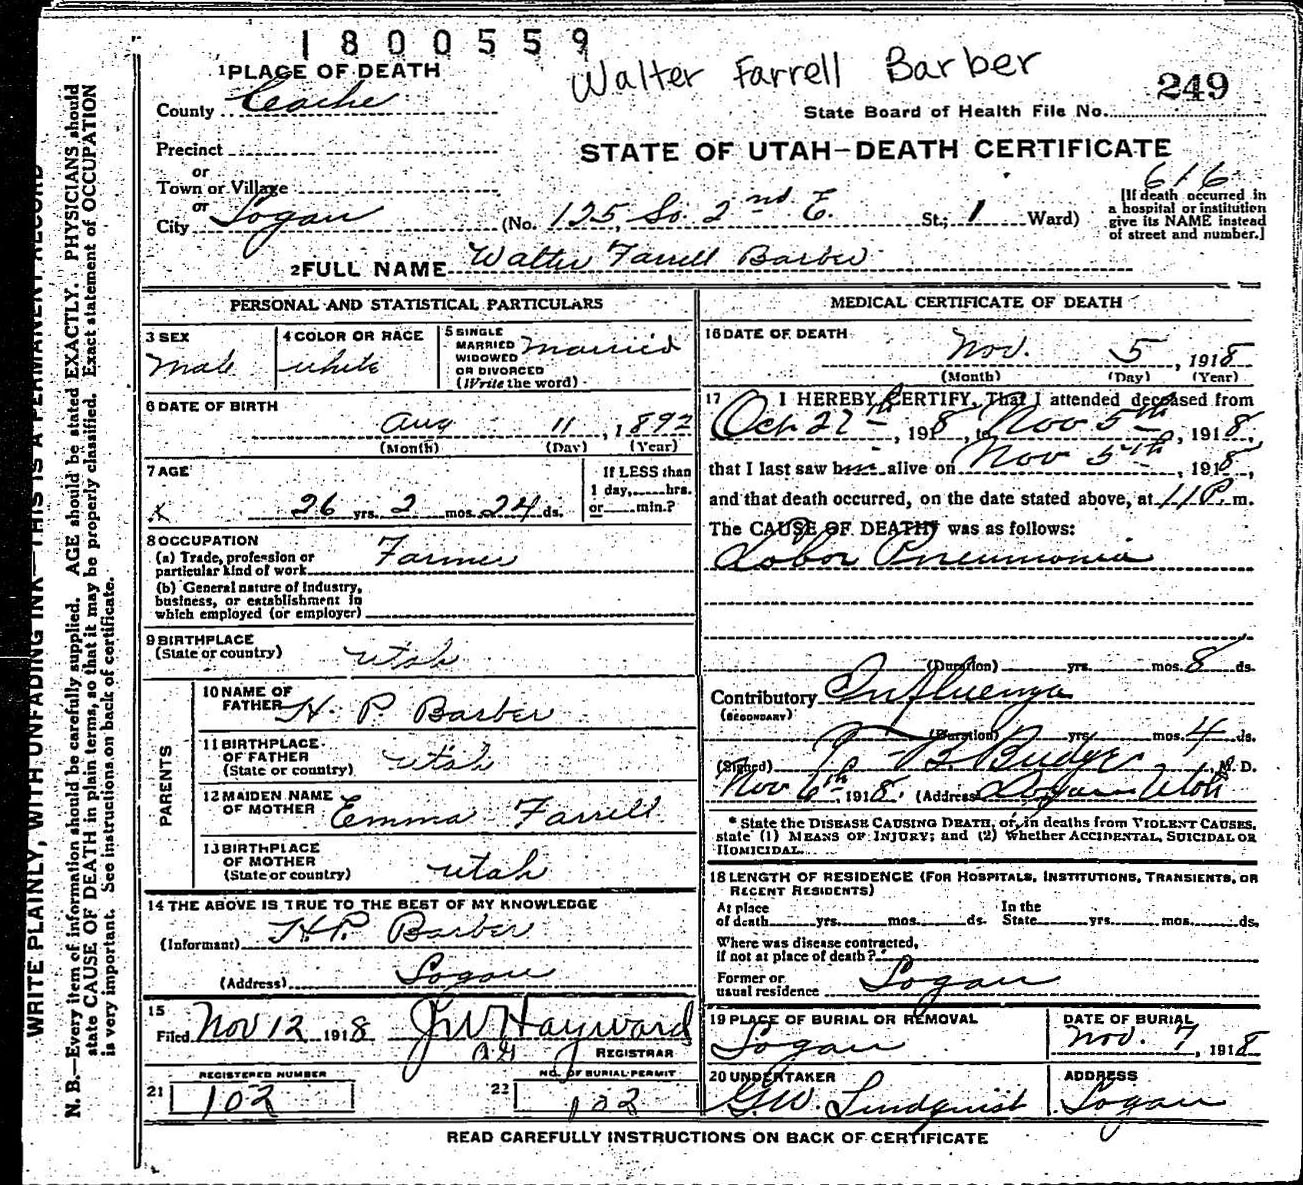 1800559
Walter Farrell Barber
249
1 PLACE OF DEATH
County Cache
State Board of Health File No.
Precinct
STATE OF UTAH-DEATH CERTIFICATE
or
Town or Village
616
or
City Logan (No. 125 So. 2nd E. St; 1 Ward)
[If death occurred in a hospital or institution give its NAME instead of street and number.]
2 FULL NAME Walter Farrell Barber
PERSONAL AND STATISTICAL PARTICULARS
3 SEX
Male
4 COLOR OR RACE
white
5 SINGLE
MARRIED
WIDOWED
OR DIVORCED
(Write the word)
married
6 DATE OF BIRTH
Aug 11, 1892
(Month) (Day) (Year)
7 AGE
26 yrs. 2 mos. 24 ds.
If LESS than
1 day, hrs.
or min.?
8 OCCUPATION
(a) Trade, profession or
particular kind of work Farmer
(b) General nature of Industry,
business, or establishment in
which employed (or employer)
9 BIRTHPLACE
(State or country) Utah
PARENTS
10 NAME OF
FATHER H. P. Barber
11 BIRTHPLACE
OF FATHER
(State or country) Utah
12 MAIDEN NAME
OF MOTHER Emma Farrell
13 BIRTHPLACE
OF MOTHER
(State or country) Utah
14 THE ABOVE IS TRUE TO THE BEST OF MY KNOWLEDGE
(Informant) H.P. Barber
(Address) Logan
15
Filed Nov 12 1918 J W Hayward
REGISTRAR
REGISTERED NUMBER
21 102
NO. OF BURIAL PERMIT
22 102
MEDICAL CERTIFICATE OF DEATH
16 DATE OF DEATH
Nov. 5, 1918
(Month) (Day) (Year)
17 I HEREBY CERTIFY, That I attended deceased from
Oct 27th, 1918, to Nov 5th, 1918,
that I last saw him alive on Nov 5th, 1918,
and that death occurred, on the date stated above, at 11 P. m.
The CAUSE OF DEATH* was as follows:
Lobar Pneumonia
(Duration) yrs. mos. 8 ds.
Contributory Influenza
(SECONDARY)
(Duration) yrs. mos. 4 ds.
(Signed) B. Budge, M. D.
Nov 6th, 1918. (Address) Logan Utah
* State the DISEASE CAUSING DEATH, or, in deaths from VIOLENT CAUSES,
state (1) MEANS OF INJURY; and (2) whether ACCIDENTAL, SUICIDAL OR
HOMICIDAL.
18 LENGTH OF RESIDENCE (FOR HOSPITALS, INSTITUTIONS, TRANSIENTS, OR
RECENT RESIDENTS)
At place
of death yrs. mos. ds.
In the
State yrs. mos. ds.
Where was disease contracted,
if not at place of death?
Former or
usual residence Logan
19 PLACE OF BURIAL OR REMOVAL
Logan
DATE OF BURIAL
Nov. 7, 1918
20 UNDERTAKER
G.W. Lindquist
ADDRESS
Logan
READ CAREFULLY INSTRUCTIONS ON BACK OF CERTIFICATE
WRITE PLAINLY, WITH UNFADING INK—THIS IS A PERMANENT RECORD
N. B.—Every item of information should be carefully supplied. AGE should be stated EXACTLY. PHYSICIANS should
state CAUSE OF DEATH in plain terms, so that it may be properly classified. Exact statement of OCCUPATION
is very important. See instructions on back of certificate.